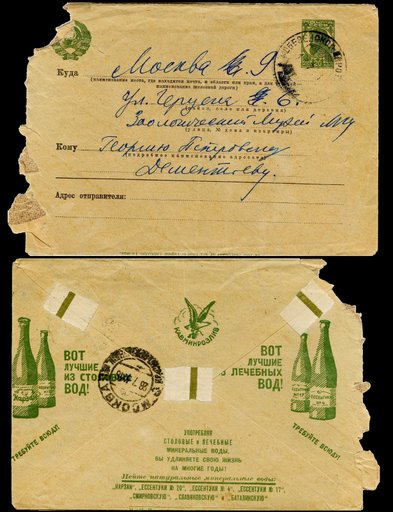 Куда
Москва 9
(наименование места, где находится почта, и области или края, а для
наименование железной дороги)
Ул. Герцена д. 6.
(район, село или деревня)
Зоологический Музей МГУ
(улица, № дома и квартиры)
Кому Георгию Петровичу
(подробное наименование адресата)
Дементьеву.
Адрес отправителя:
КАВМИНРОЗЛИВ
ВОТ
ЛУЧШИЕ
ИЗ СТОЛОВЫХ
ВОД!
МОСКВА
ВОТ
ЛУЧШИЕ
ИЗ ЛЕЧЕБНЫХ
ВОД!
ТРЕБУЙТЕ ВСЮДУ!
ТРЕБУЙТЕ ВСЮДУ!
УПОТРЕБЛЯЯ
СТОЛОВЫЕ и ЛЕЧЕБНЫЕ
МИНЕРАЛЬНЫЕ ВОДЫ,
ВЫ УДЛИНЯЕТЕ СВОЮ ЖИЗНЬ
НА МНОГИЕ ГОДЫ!
Пейте натуральные минеральные воды:
"НАРЗАН", "ЕССЕНТУКИ № 20", "ЕССЕНТУКИ № 4", "ЕССЕНТУКИ № 17"
"СМИРНОВСКУЮ", "СЛАВЯНОВСКУЮ" и "БАТАЛИНСКУЮ"